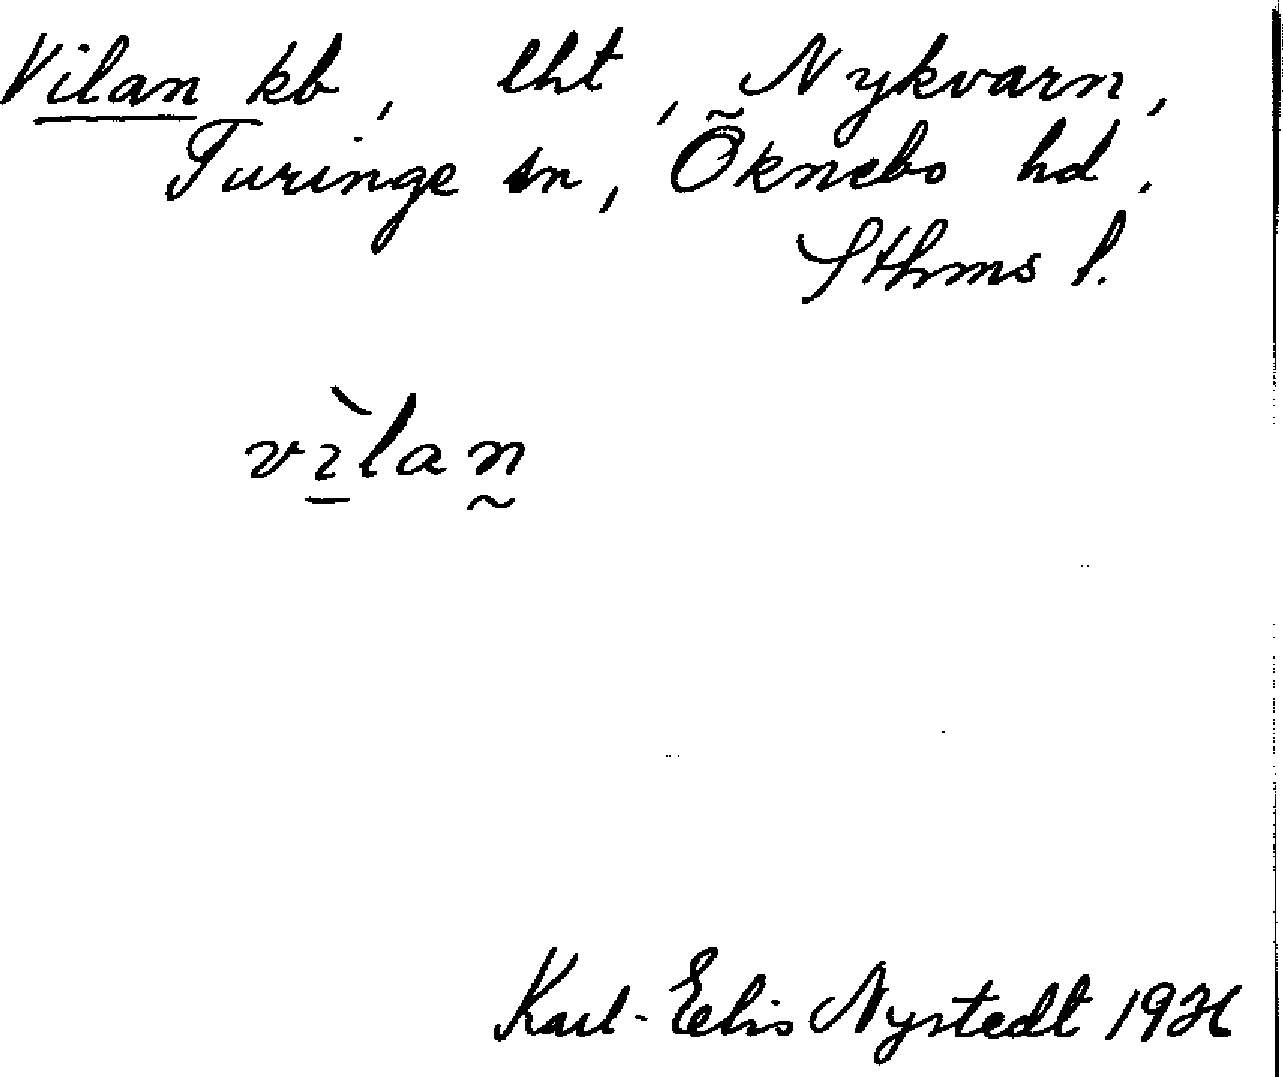 Vilan kb, lht, Nykvarn,
Turinge sn, Öknebo hd,
Sthms l.
vìlan
Karl-Eelis Nystedt